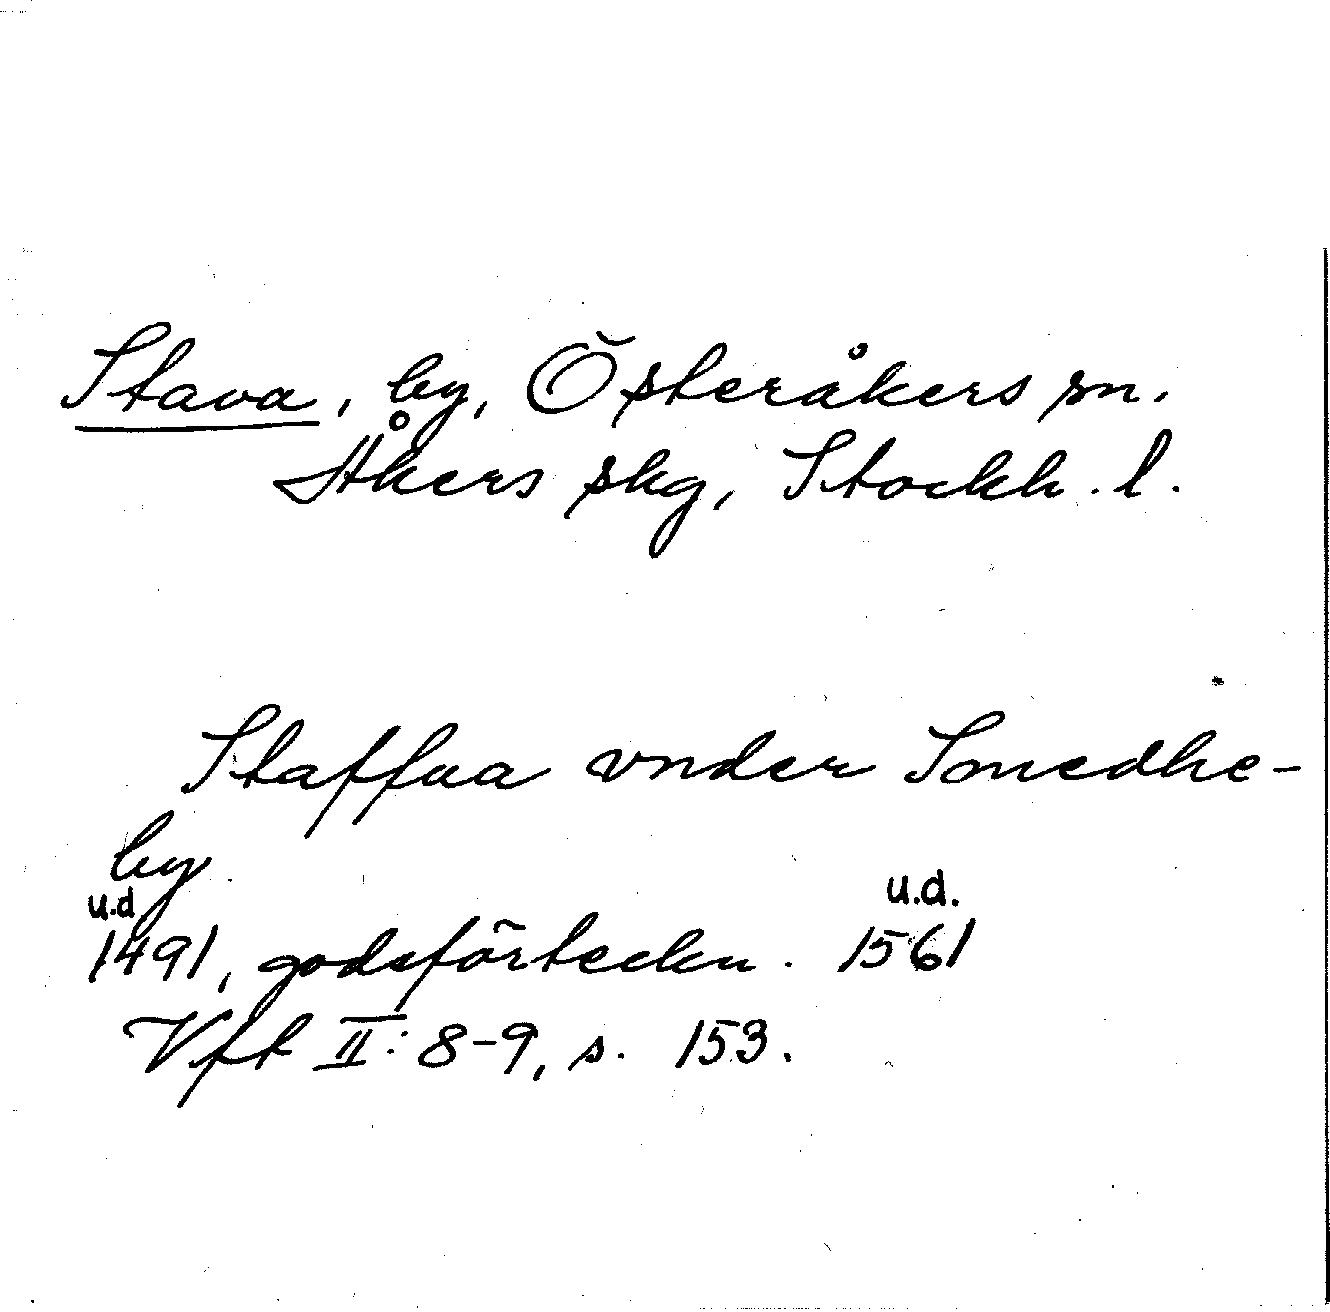 Stava, by, Österåkers sn.
Åkers skg, Stockh. l.
Staffua vnder Smedhe-
by
u.d. u.d.
1491, godsförteckn. 1561
Vft II: 8-9, s. 153.